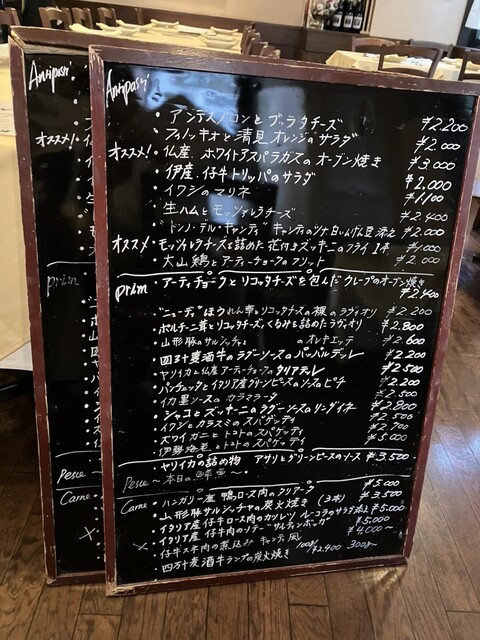 Antipasti
アンデスメロンとブッラータチーズ ¥2.200
フィノッキオと清見オレンジのサラダ ¥2.000
オススメ! 仏産 ホワイトアスパラガスのオーブン焼き ¥3.000
伊産 仔牛トリッパのサラダ ¥2.000
イワシのマリネ ¥1100
生ハムとモッツァレラチーズ ¥2.400
"ドンノ・デル・キャンティ" キャンティのツナ 白いんげん豆添え ¥2.000
オススメ・モッツァレラチーズを詰めた花付きズッキーニのフライ 1本 ¥1000
大山鶏とアーティーチョークのフリット ¥2.000
prim アーティチョークとリコッタチーズを包んだクレープのオーブン焼き ¥2.400
"ニューディ" ほうれん草とリコッタチーズの裸のラヴィオリ ¥2.200
ポルチーニ茸とリコッタチーズ、くるみを詰めたラヴィオリ ¥2.800
山形豚のサルシッチャ のオレキエッテ ¥2.600
四万十麦酒牛のラグーソースのパッパルデッレ ¥2.200
ヤリイカと仏産アーティーチョークのタリアテレ ¥2.500
パンチェッタとイタリア産グリーンピースのソースのピチ ¥2.200
イカ墨ソースの カラマラータ ¥2.500
シャコとズッキーニのラグーソースのリングイネ ¥2.800
イワシとカラスミのスパゲッティ ¥2.500
ズワイガニとトマトのスパゲッティ ¥2.700
伊勢海老とトマトのスパゲッティ ¥5.000
Pesce ヤリイカの詰め物 アサリとグリーンピースのソース ¥3.500
〜本日の鮮魚〜
Carne ハンガリー産 鴨ロース肉のタリアータ ¥5.000
山形豚サルシッチャの炭火焼き (3本) ¥3.500
イタリア産 仔牛ロース肉のカツレツ ルーコラのサラダ添え ¥5.000
イタリア産 仔牛肉のソテー サルティンボッカ ¥5.000
仔牛スネ肉の煮込み キャンティ風 ¥4.000〜
四万十麦酒牛ランプの炭火焼き 100g/¥2.400 300g〜